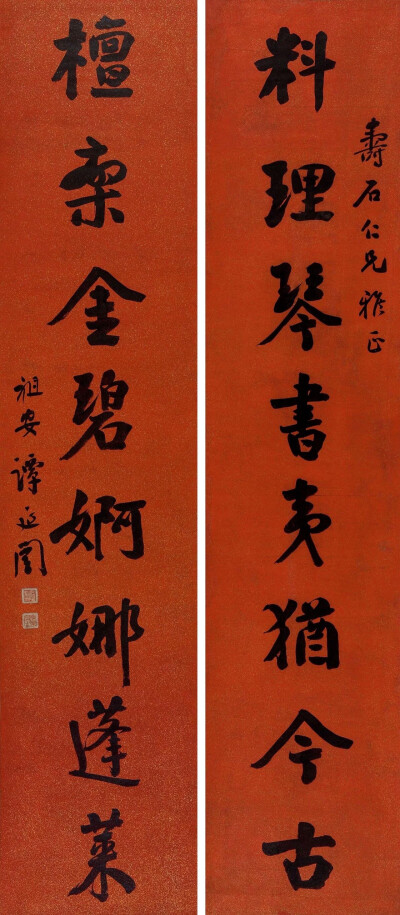 壽石仁兄雅正
料理琴書夷猶今古
檀栾金碧婀娜蓬萊
祖安譚延闓